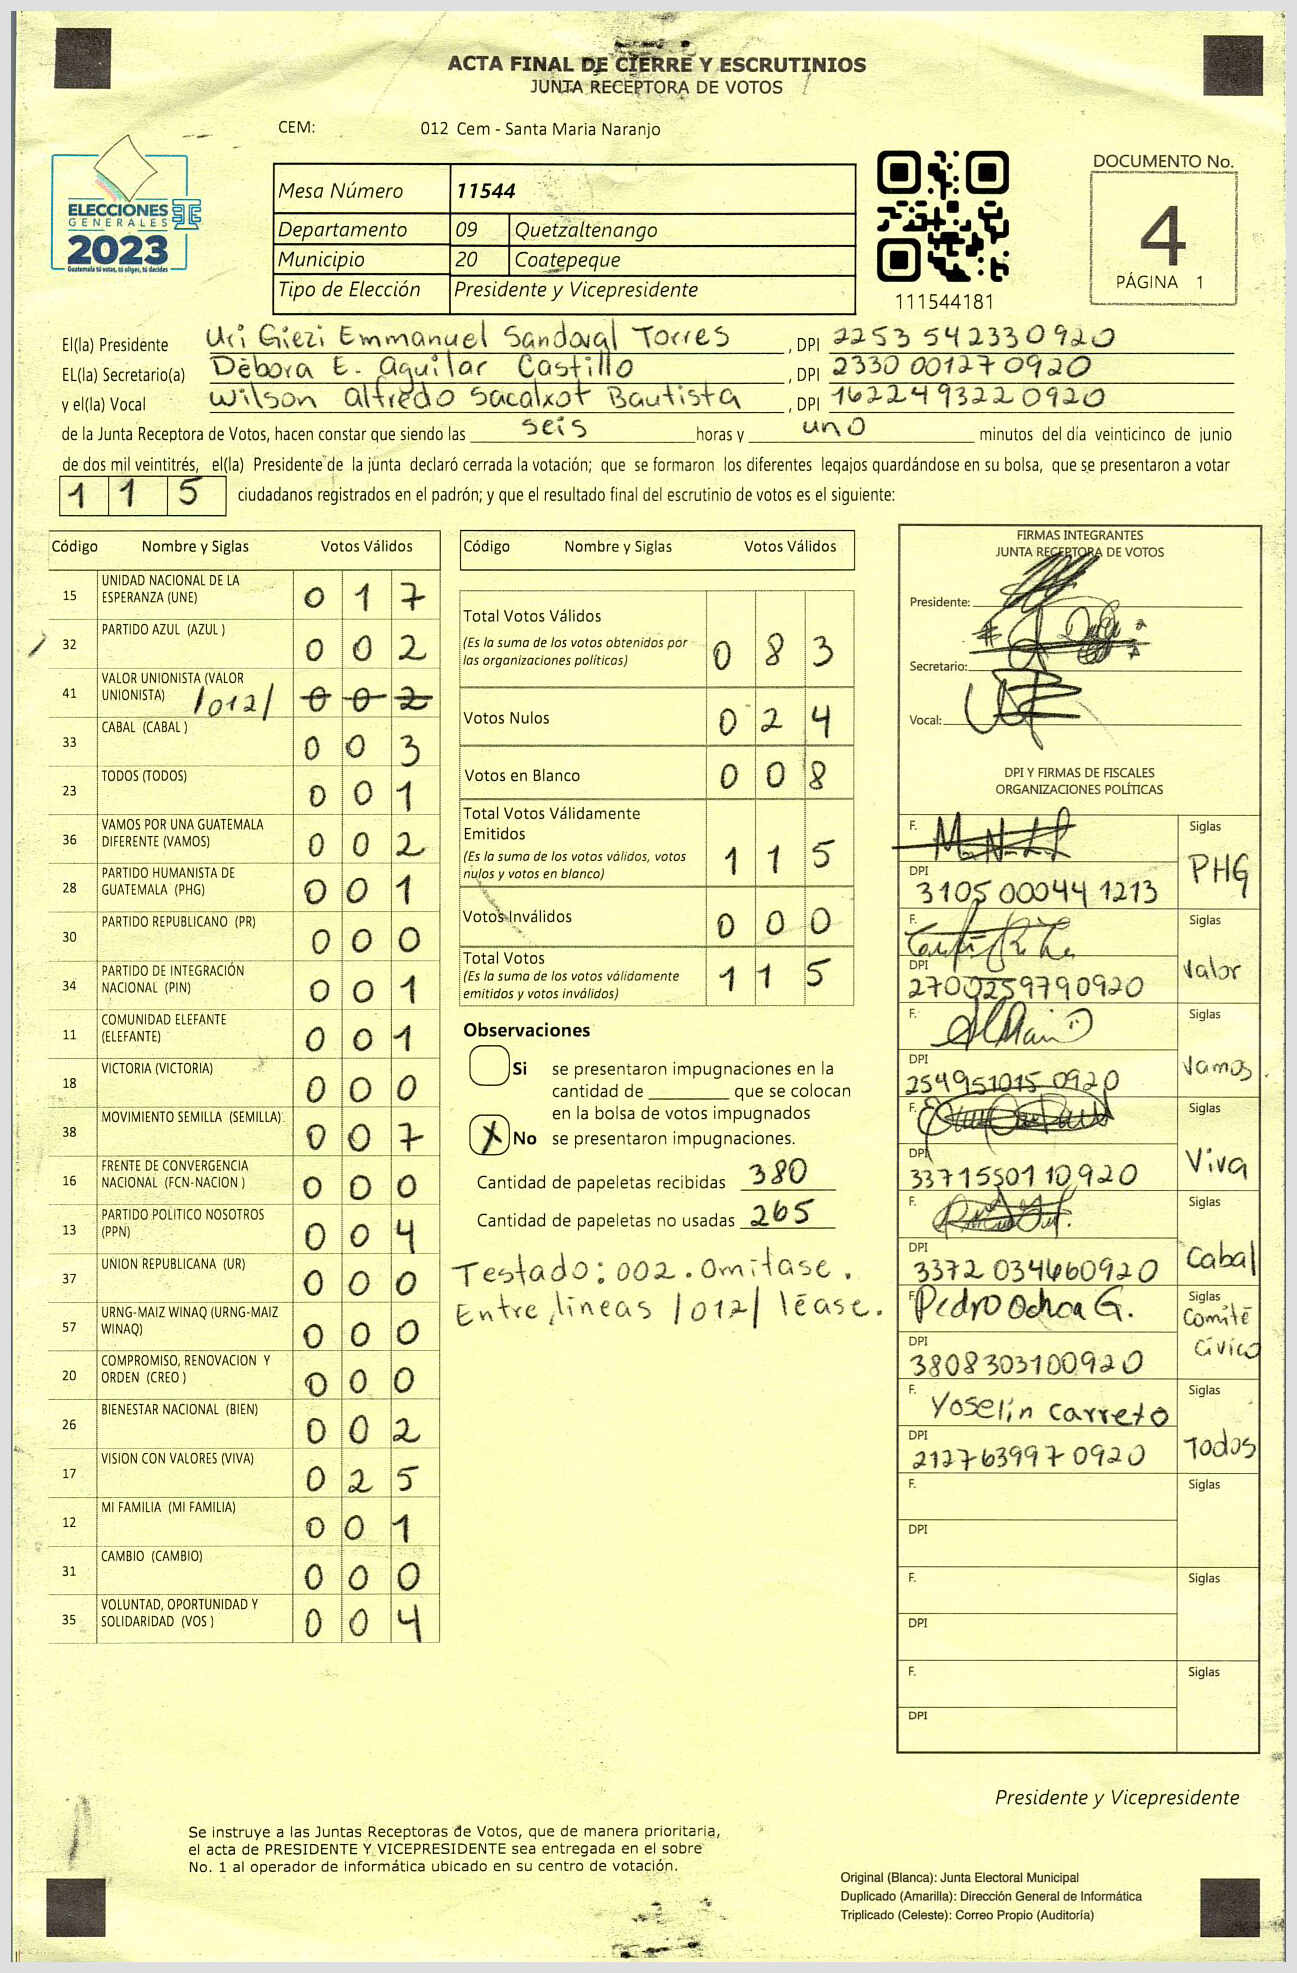 ACTA FINAL DE CIERRE Y ESCRUTINIOS
JUNTA RECEPTORA DE VOTOS
CEM: 012 Cem - Santa Maria Naranjo
ELECCIONES
GENERALES
2023
Guatemala tú votas, tú eliges, tú decides
Mesa Número 11544
Departamento 09 Quetzaltenango
Municipio 20 Coatepeque
Tipo de Elección Presidente y Vicepresidente
111544181
DOCUMENTO No.
4
PÁGINA 1
El(la) Presidente Uri Giezi Emmanuel Sandoval Torres, DPI 2253 542330920
EL(la) Secretario(a) Dèbora E. Aguilar Castillo, DPI 2330 00127 0920
y el(la) Vocal Wilson Alfredo Sacalxot Bautista, DPI 1622493220920
de la Junta Receptora de Votos, hacen constar que siendo las seis horas y uno minutos del día veinticinco de junio
de dos mil veintitrés, el(la) Presidente de la junta declaró cerrada la votación; que se formaron los diferentes legajos guardándose en su bolsa, que se presentaron a votar
115 ciudadanos registrados en el padrón; y que el resultado final del escrutinio de votos es el siguiente:
Código Nombre y Siglas Votos Válidos
15 UNIDAD NACIONAL DE LA ESPERANZA (UNE) 017
32 PARTIDO AZUL (AZUL ) 002
41 VALOR UNIONISTA (VALOR UNIONISTA) /012/ 002
33 CABAL (CABAL ) 003
23 TODOS (TODOS) 001
36 VAMOS POR UNA GUATEMALA DIFERENTE (VAMOS) 002
28 PARTIDO HUMANISTA DE GUATEMALA (PHG) 001
30 PARTIDO REPUBLICANO (PR) 000
34 PARTIDO DE INTEGRACIÓN NACIONAL (PIN) 001
11 COMUNIDAD ELEFANTE (ELEFANTE) 001
18 VICTORIA (VICTORIA) 000
38 MOVIMIENTO SEMILLA (SEMILLA) 007
16 FRENTE DE CONVERGENCIA NACIONAL (FCN-NACION ) 000
13 PARTIDO POLITICO NOSOTROS (PPN) 004
37 UNION REPUBLICANA (UR) 000
57 URNG-MAIZ WINAQ (URNG-MAIZ WINAQ) 000
20 COMPROMISO, RENOVACION Y ORDEN (CREO ) 000
26 BIENESTAR NACIONAL (BIEN) 002
17 VISION CON VALORES (VIVA) 025
12 MI FAMILIA (MI FAMILIA) 001
31 CAMBIO (CAMBIO) 000
35 VOLUNTAD, OPORTUNIDAD Y SOLIDARIDAD (VOS ) 004
Código Nombre y Siglas Votos Válidos
Total Votos Válidos 083
(Es la suma de los votos obtenidos por
las organizaciones políticas)
Votos Nulos 024
Votos en Blanco 008
Total Votos Válidamente
Emitidos 115
(Es la suma de los votos válidos, votos
nulos y votos en blanco)
Votos Inválidos 000
Total Votos 115
(Es la suma de los votos válidamente
emitidos y votos inválidos)
Observaciones
Si se presentaron impugnaciones en la
cantidad de ________ que se colocan
en la bolsa de votos impugnados
X No se presentaron impugnaciones.
Cantidad de papeletas recibidas 380
Cantidad de papeletas no usadas 265
Testado: 002. Omitase.
Entre líneas /012/ léase.
FIRMAS INTEGRANTES
JUNTA RECEPTORA DE VOTOS
Presidente:
Secretario:
Vocal:
DPI Y FIRMAS DE FISCALES
ORGANIZACIONES POLÍTICAS
F. Siglas PHG
DPI 3105 00044 1213
F. Siglas Valor
DPI 2700259790920
F. Siglas Vamos.
DPI 254951015 0920
F. Siglas Viva
DPI 3371550110920
F. Siglas Cabal
DPI 3372 034660920
F. Pedro Ochoa G. Siglas Comité Cívico
DPI 3808303100920
F. Yoselin Carreto Siglas Todos
DPI 2127639970920
F. Siglas
DPI
F. Siglas
DPI
F. Siglas
DPI
Presidente y Vicepresidente
Se instruye a las Juntas Receptoras de Votos, que de manera prioritaria,
el acta de PRESIDENTE Y VICEPRESIDENTE sea entregada en el sobre
No. 1 al operador de informática ubicado en su centro de votación.
Original (Blanca): Junta Electoral Municipal
Duplicado (Amarilla): Dirección General de Informática
Triplicado (Celeste): Correo Propio (Auditoría)